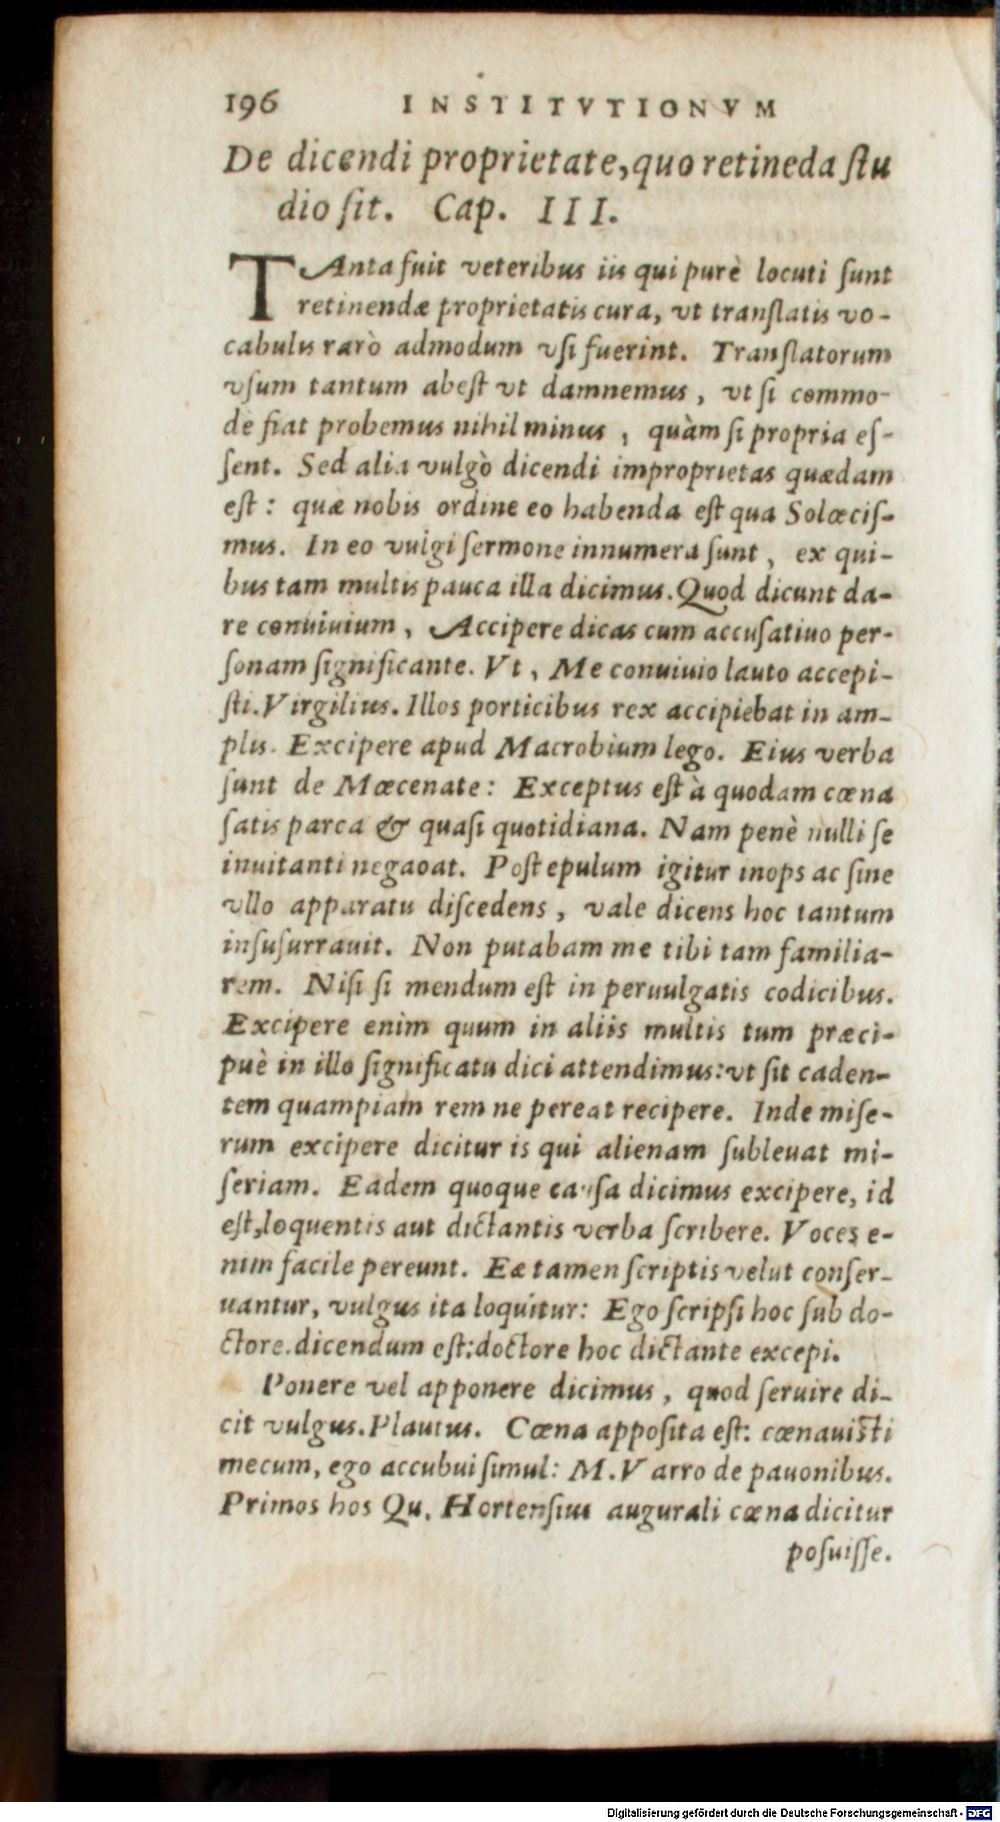 196 INSTITVTIONVM
De dicendi proprietate, quo retineda ſtu
dio ſit. Cap. III.
TAnta fuit veteribus iis qui purè locuti ſunt
retinendæ proprietatis cura, vt tranſlatis vo-
cabulis rarò admodum vſi fuerint. Tranſlatorum
vſum tantum abeſt vt damnemus, vt ſi commo-
de fiat probemus nihil minus, quàm ſi propria eſ-
ſent. Sed alia vulgò dicendi improprietas quædam
eſt: quæ nobis ordine eo habenda eſt qua Solœciſ-
mus. In eo vulgi ſermone innumera ſunt, ex qui-
bus tam multis pauca illa dicimus. Quod dicunt da-
re conuiuium, Accipere dicas cum accuſatiuo per-
ſonam ſignificante. Vt, Me conuiuio lauto accepi-
ſti. Virgilius. Illos porticibus rex accipiebat in am-
plis. Excipere apud Macrobium lego. Eius verba
ſunt de Mœcenate: Exceptus eſt à quodam cœna
ſatis parca & quaſi quotidiana. Nam penè nulli ſe
inuitanti negaoat. Poſt epulum igitur inops ac ſine
vllo apparatu diſcedens, vale dicens hoc tantum
inſuſurrauit. Non putabam me tibi tam familia-
rem. Niſi ſi mendum eſt in peruulgatis codicibus.
Excipere enim quum in aliis multis tum præci-
puè in illo ſignificatu dici attendimus: vt ſit caden-
tem quampiam rem ne pereat recipere. Inde miſe-
rum excipere dicitur is qui alienam ſubleuat mi-
ſeriam. Eadem quoque cauſa dicimus excipere, id
eſt, loquentis aut dictantis verba ſcribere. Voces e-
nim facile pereunt. Eæ tamen ſcriptis velut conſer-
uantur, vulgus ita loquitur: Ego ſcripſi hoc ſub do-
ctore. dicendum eſt: doctore hoc dictante excepi.
Ponere vel apponere dicimus, quod ſeruire di-
cit vulgus. Plautus. Cœna appoſita eſt: cœnauiſti
mecum, ego accubui ſimul: M. Varro de pauonibus.
Primos hos Qu. Hortenſius augurali cœna dicitur
poſuiſſe.
Digitalisierung gefördert durch die Deutsche Forschungsgemeinschaft - DFG